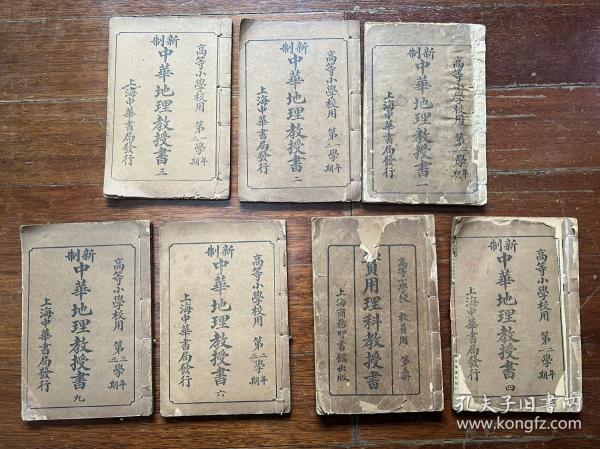 高等小學校用 第一學年
第三學期
新制
中華地理教授書 三
上海中華書局發行
高等小學校用 第一學年
第二學期
新制
中華地理教授書 二
上海中華書局發行
高等小學校用 第一學年
新制
中華地理教授書 一
上海中華書局發行
高等小學校用
學年
學期
新制
中華地理教授書 九
上海中華書局發行
高等小學校用 第二學年
學期
新制
中華地理教授書 六
上海中華書局發行
高等小學校 教員用 第五冊
實用理科教授書
上海商務印書館出版
高等小學校用 第二學年
學期
新制
中華地理教授書 四
上海中華書局發行
孔夫子旧书网
www.kongfz.com